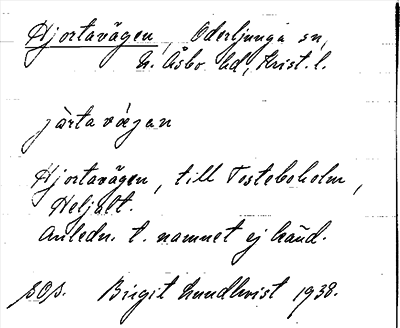 Hjortavägen, Oderljunga sn,
N. Åsbo hd, Krist. l.
järtavägan
Hjortavägen, till Tosteboholm,
Heljalt.
Anledn. t. namnet ej känd.
SOS. Birgit Lundkvist 1938.